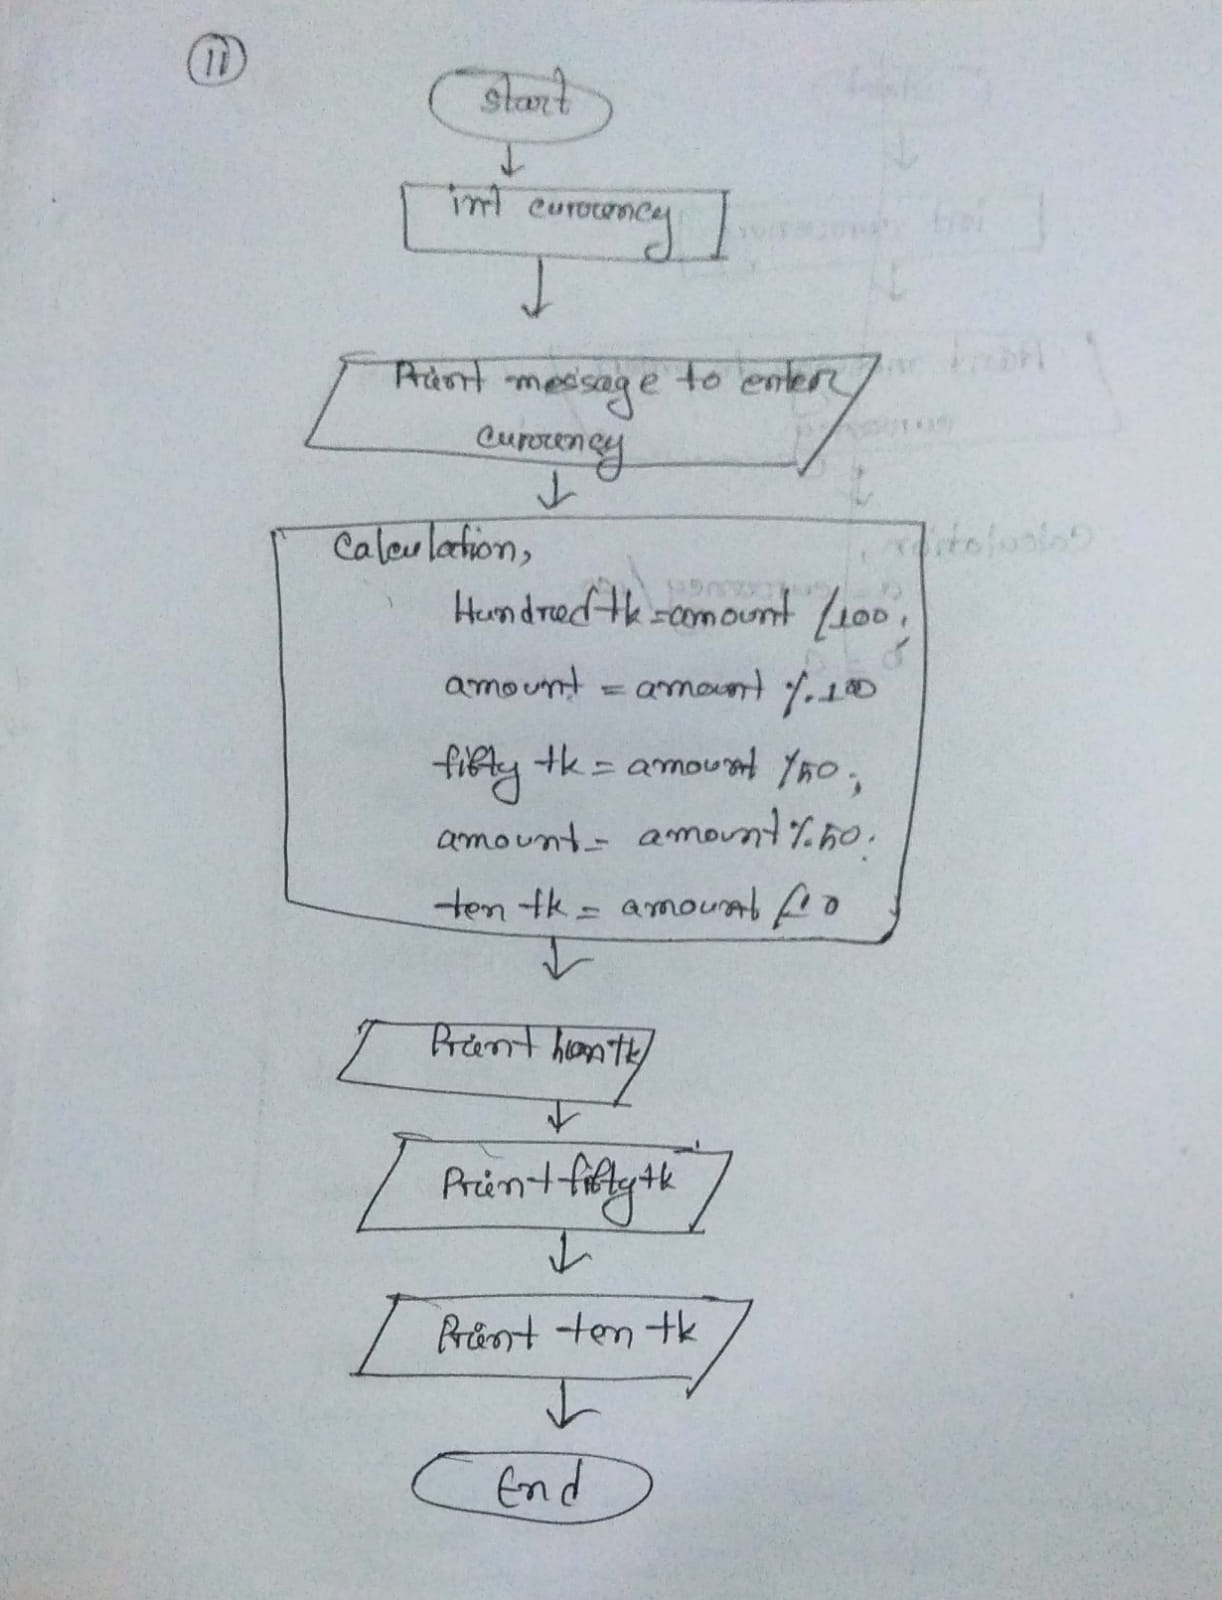 11
start
int currency
Print message to enter
currency
Calculation,
Hundred tk = amount /100;
amount = amount %100
fifty tk = amount /50;
amount = amount %50.
ten tk = amount /10
Print hun tk
Print fifty tk
Print ten tk
End